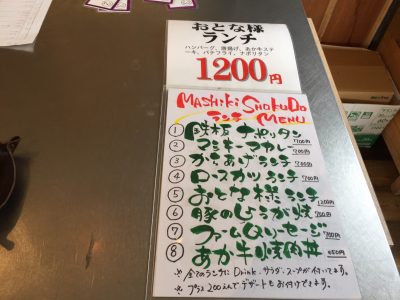 おとな様
ランチ
ハンバーグ、唐揚げ、あか牛ステ
ーキ、バナフライ、ナポリタン
1200円
MASHIKI SHOKUDO
ランチ MENU
① 鉄板 ナポリタン
② マシキーマカレー 700円
③ からあげランチ 700円
④ ロースカツランチ 700円
⑤ おとな様ランチ 1200円
⑥ 豚のしょうが焼 700円
⑦ ファームソーセージ 700円
⑧ あか牛焼肉丼
※ 全てのランチに Drink、サラダ、スープが付いてます。
※ プラス200えんでデザートもお付けできます。